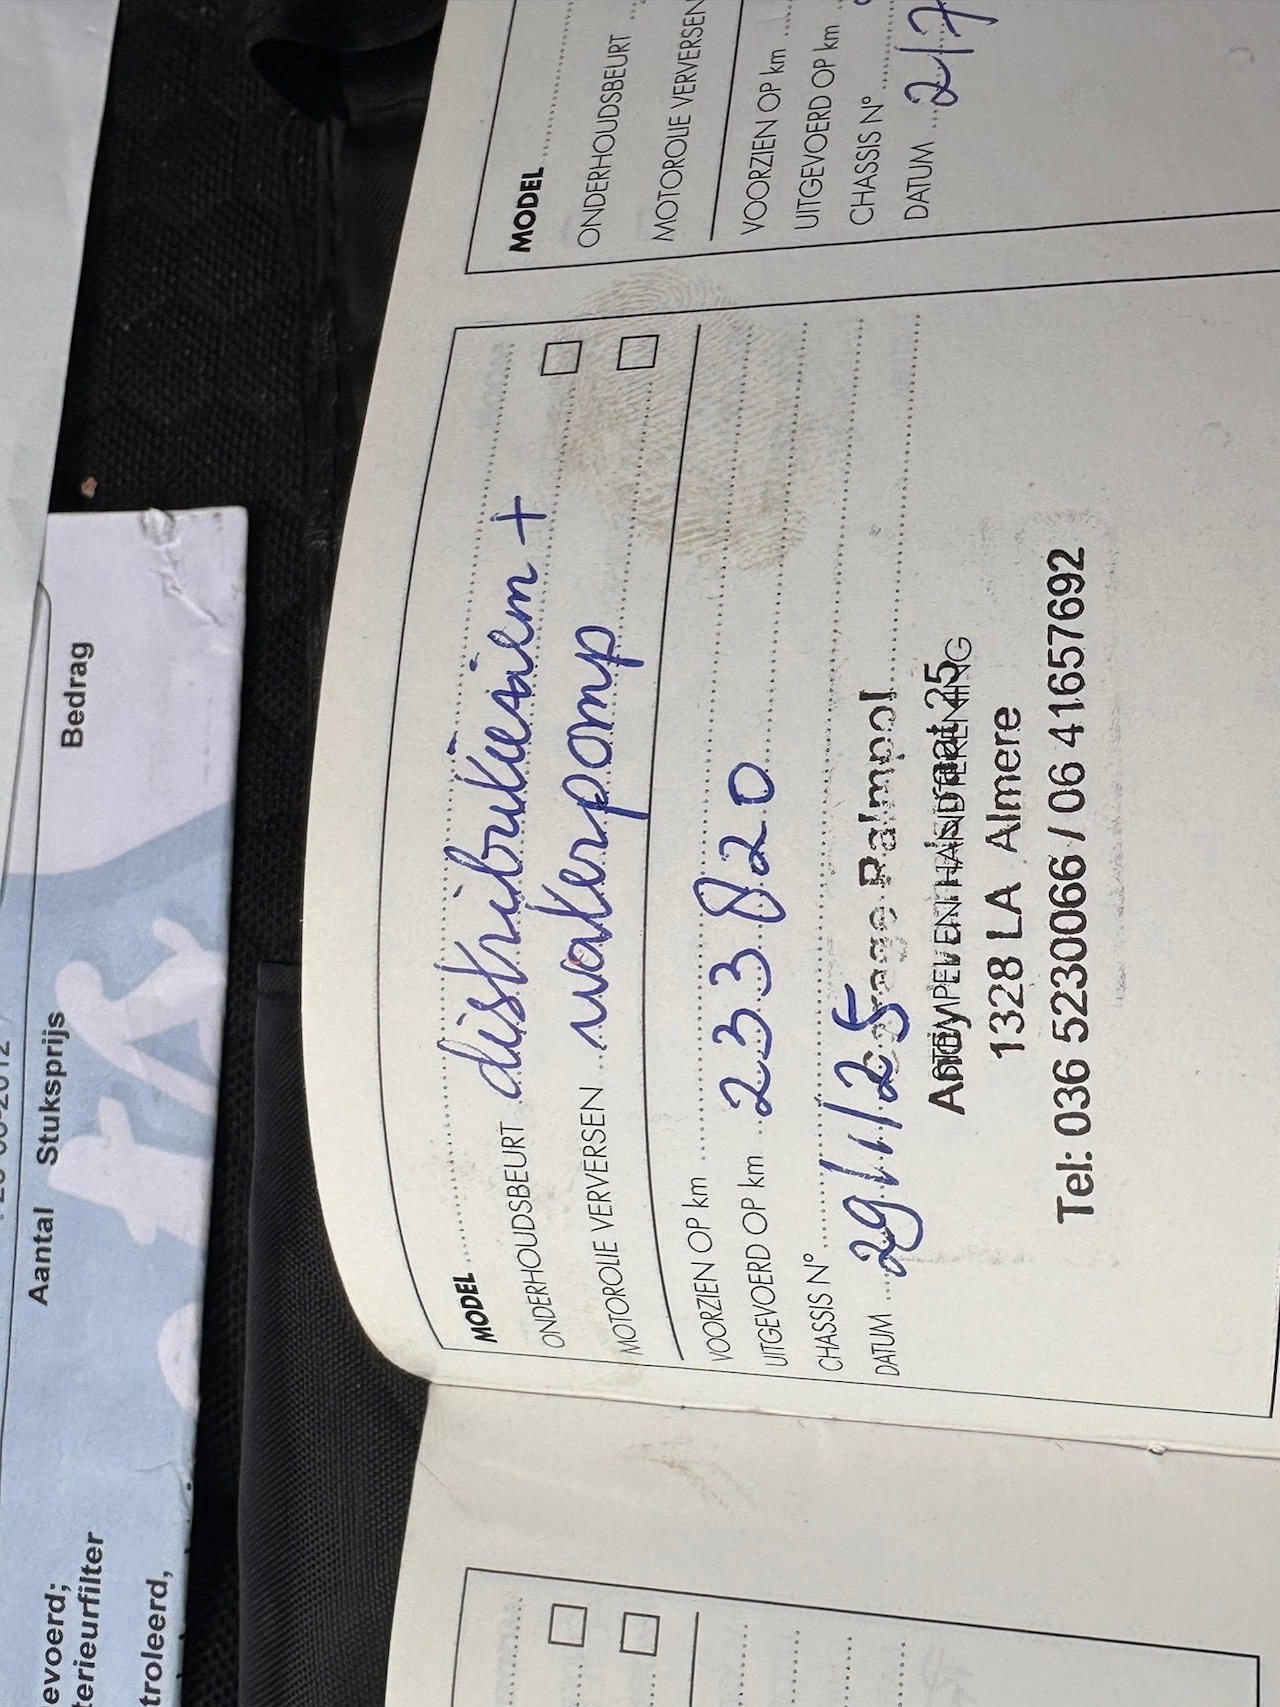 MODEL
ONDERHOUDSBEURT distributieriem +
MOTOROLIE VERVERSEN waterpomp
VOORZIEN OP km
UITGEVOERD OP km 233820
CHASSIS N°
DATUM 29/1/25
Garage Palmpol
1328 LA Almere
Tel: 036 5230066 / 06 41657692
MODEL
ONDERHOUDSBEURT
MOTOROLIE VERVERSEN
VOORZIEN OP km
UITGEVOERD OP km
CHASSIS N°
DATUM 2/7
Aantal Stuksprijs Bedrag
evoerd;
terieurfilter
troleerd,